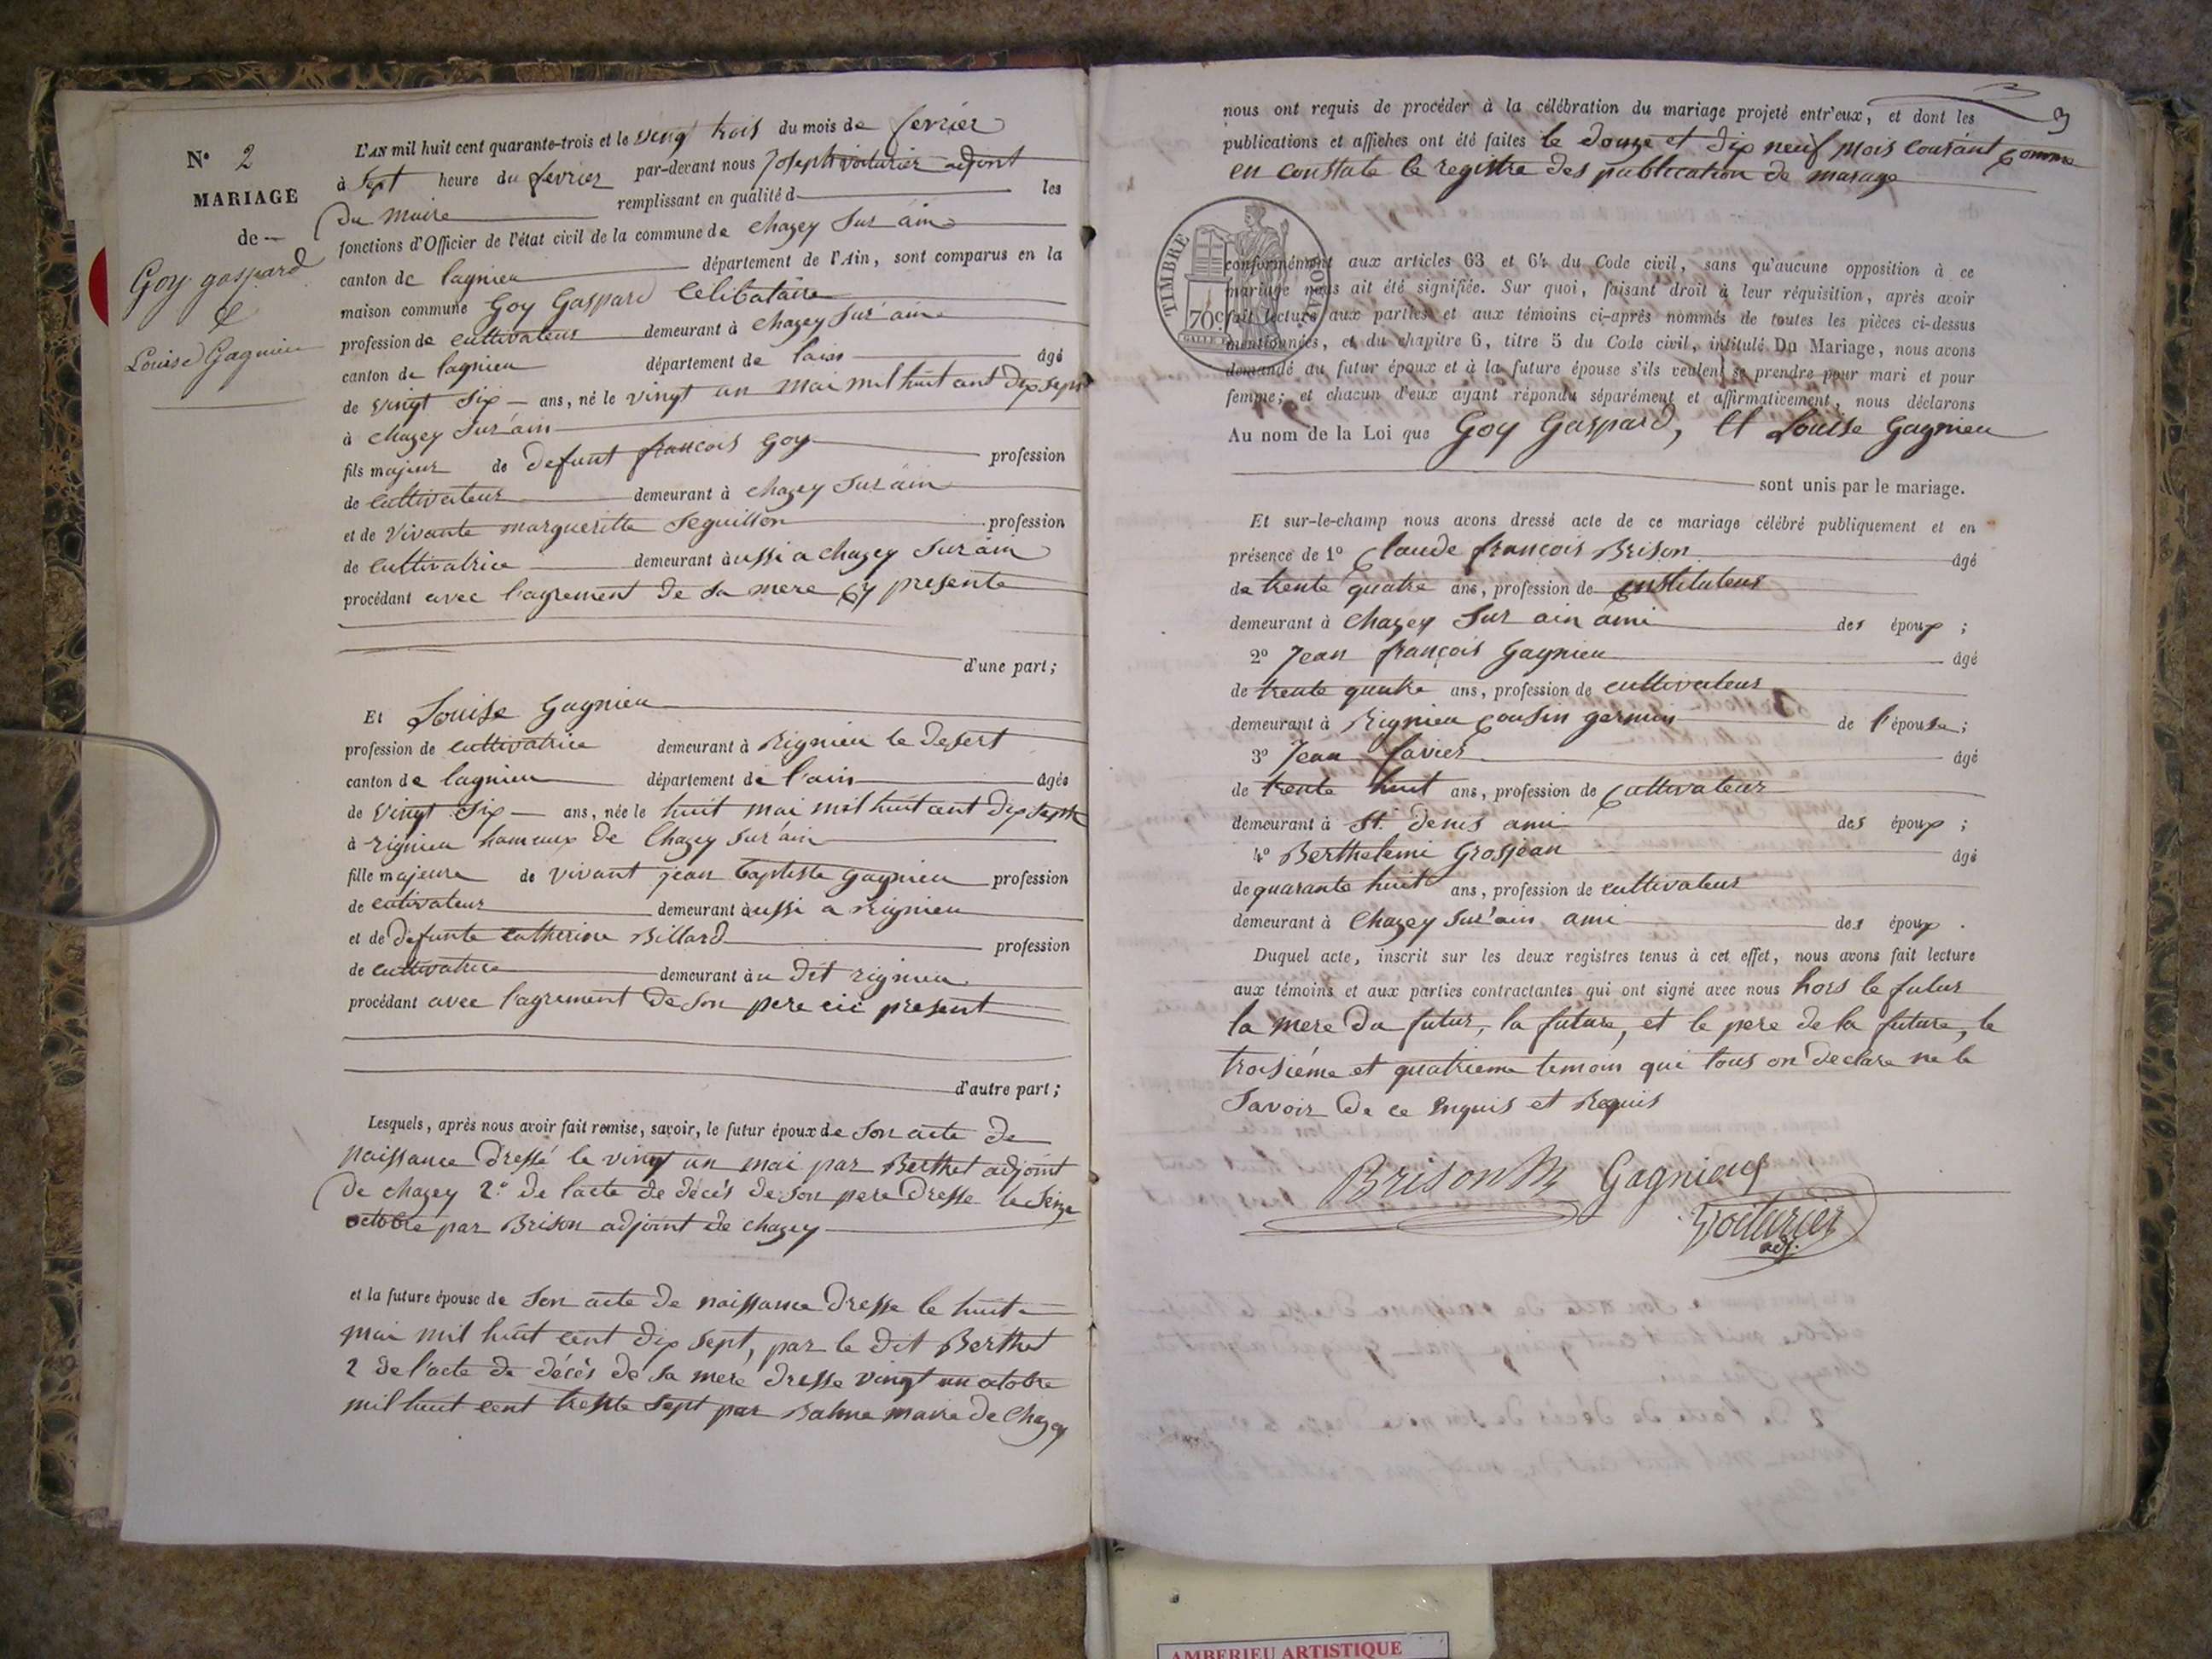 N° 2
MARIAGE
de
Goy gaspard
&
Louise Gagnieu
L'AN mil huit cent quarante-trois et le ving trois du mois de fevrier
à sept heure du fevrier par-devant nous Joseph voiturier adjoint
du maire remplissant en qualité d les
fonctions d'Officier de l'état civil de la commune de chazey sur ain
canton de lagnieu département de l'Ain, sont comparus en la
maison commune Goy Gaspard Celibataire
profession de cultivateur demeurant à chazey sur ain
canton de lagnieu département de lain âgé
de vingt six ans, né le vingt un mai mil huit cent dix sept
à chazey sur ain
fils majeur de defunt francois goy profession
de cultivateur demeurant à chazey sur ain
et de vivante margueritte seguillon profession
de cultivatrice demeurant àussi a chazey sur ain
procédant avec l'agrement de sa mere cy presente
d'une part;
Et Louise gagnieu
profession de cultivatrice demeurant à Rignieu le desert
canton de lagnieu département de l'ain âgée
de vingt six ans, née le huit mai mil huit cent dix sept
à rignieu hameaux de Chazey sur ain
fille majeure de vivant jean baptiste gagnieu profession
de cutivateur demeurant àussi a rignieu
et de defunte catherine Billard profession
de cultivatrice demeurant àu dit rignieu
procédant avec l'agrement de son pere cii present
d'autre part;
Lesquels, après nous avoir fait remise, savoir, le futur époux de son acte de
naissance dressé le vingt un mai par Berthet adjoint
de chazey 2° de l'acte de décés de son pere dresse le seize
octobre par Brison adjoint de chazey
et la future épouse de son acte de naissance dresse le huit
mai mil huit cent dix sept, par le dit Berthet
2 de l'acte de décès de sa mere dresse vingt un octobre
mil huit cent trente sept par maire de Chazey
3
nous ont requis de procéder à la célébration du mariage projeté entr'eux, et dont les
publications et affiches ont été faites le douze et dix neuf mois courant comme
en constate le registre des publication de mariage
TIMBRE ROYAL
70c
conformément aux articles 63 et 64 du Code civil, sans qu'aucune opposition à ce
mariage nous ait été signifiée. Sur quoi, faisant droit à leur réquisition, après avoir
fait lecture aux parties et aux témoins ci-après nommés de toutes les pièces ci-dessus
mentionnées, et du chapitre 6, titre 5 du Code civil, intitulé Du Mariage, nous avons
demandé au futur époux et à la future épouse s'ils veulent se prendre pour mari et pour
femme; et chacun d'eux ayant répondu séparément et affirmativement, nous déclarons
Au nom de la Loi que Goy Gaspard, et Louise Gagnieu
sont unis par le mariage.
Et sur-le-champ nous avons dressé acte de ce mariage célébré publiquement et en
présence de 1° Claude françois Brison âgé
de trente quatre ans, profession de instituteur
demeurant à chazey sur ain ami des époux ;
2° Jean françois Gagnieu âgé
de trente quatre ans, profession de cultivateur
demeurant à Rignieu cousin germain de l'épouse ;
3° Jean favier âgé
de trente huit ans, profession de cultivateur
demeurant à St. denis ami des époux ;
4° Berthelemi Grosjean âgé
de quarante huit ans, profession de cultivateur
demeurant à Chazey sur'ain ami des époux .
Duquel acte, inscrit sur les deux registres tenus à cet effet, nous avons fait lecture
aux témoins et aux parties contractantes qui ont signé avec nous hors le futur
la mere du futur, la future, et le pere de la future, le
troisiéme et quatrieme temoin qui tous on declare ne le
savoir de ce enquis et Requis
Brison Gagnieu
Voiturier
adj.
AMBERIEU ARTISTIQUE